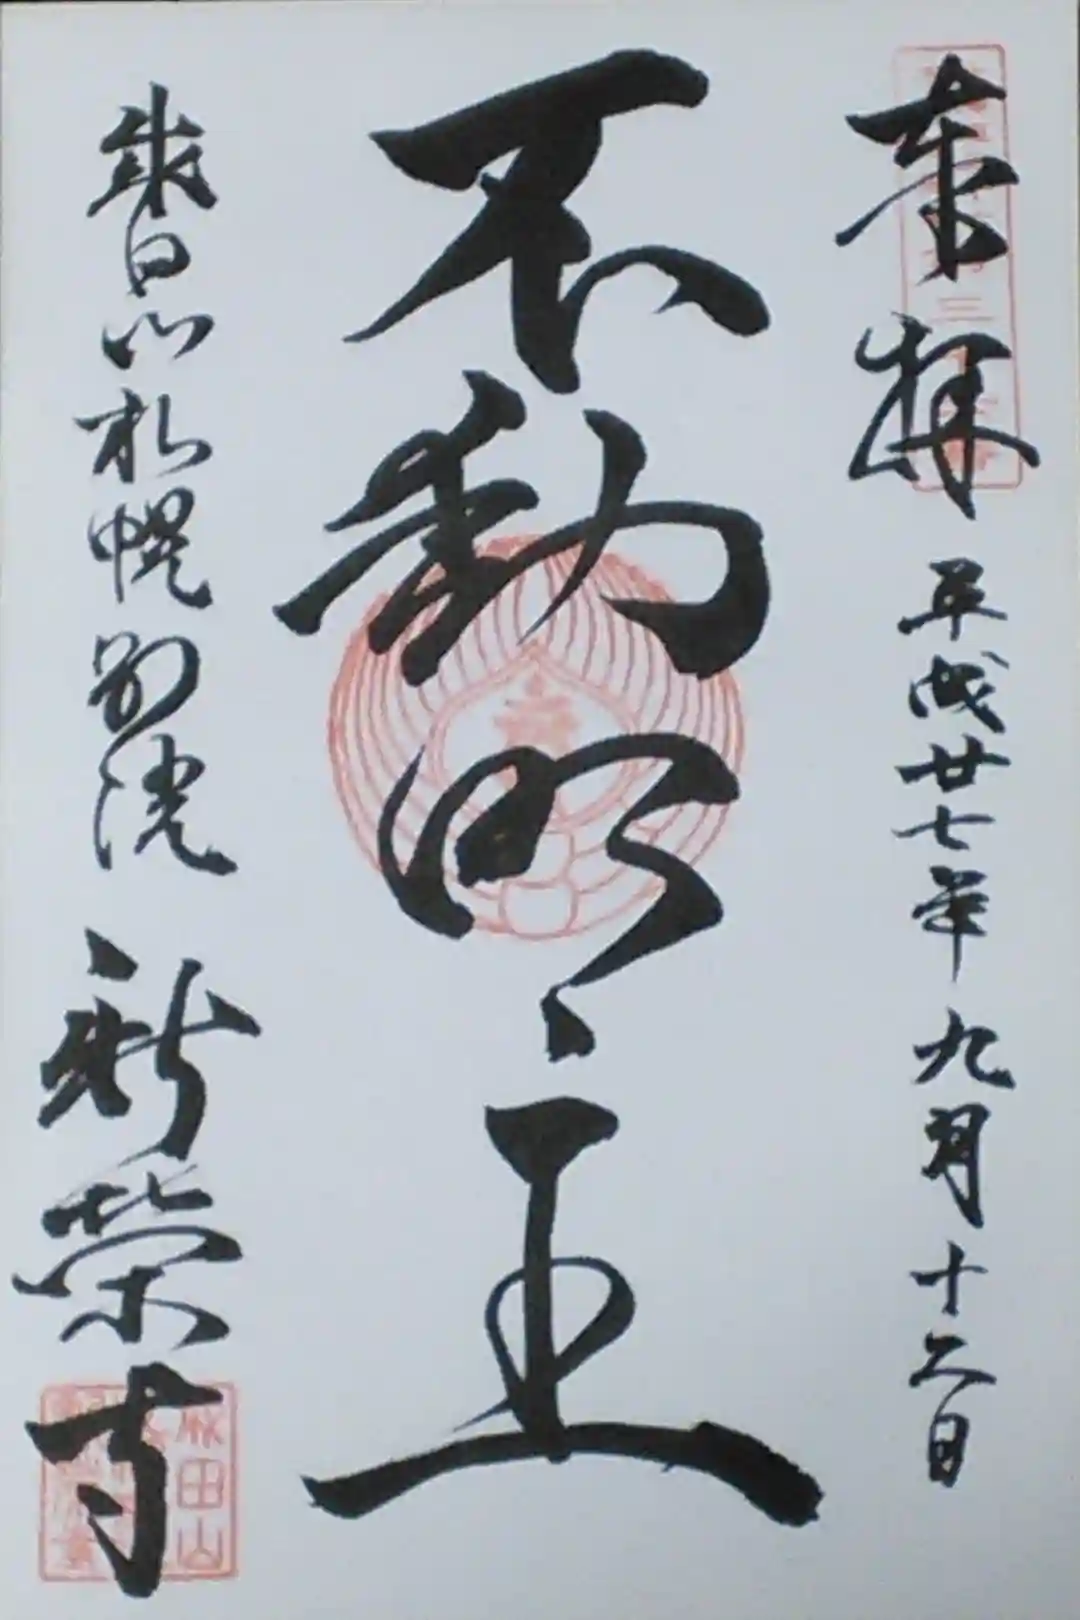 奉拝 平成廿七年 九月十二日
不動明王
成田山札幌別院 新栄寺